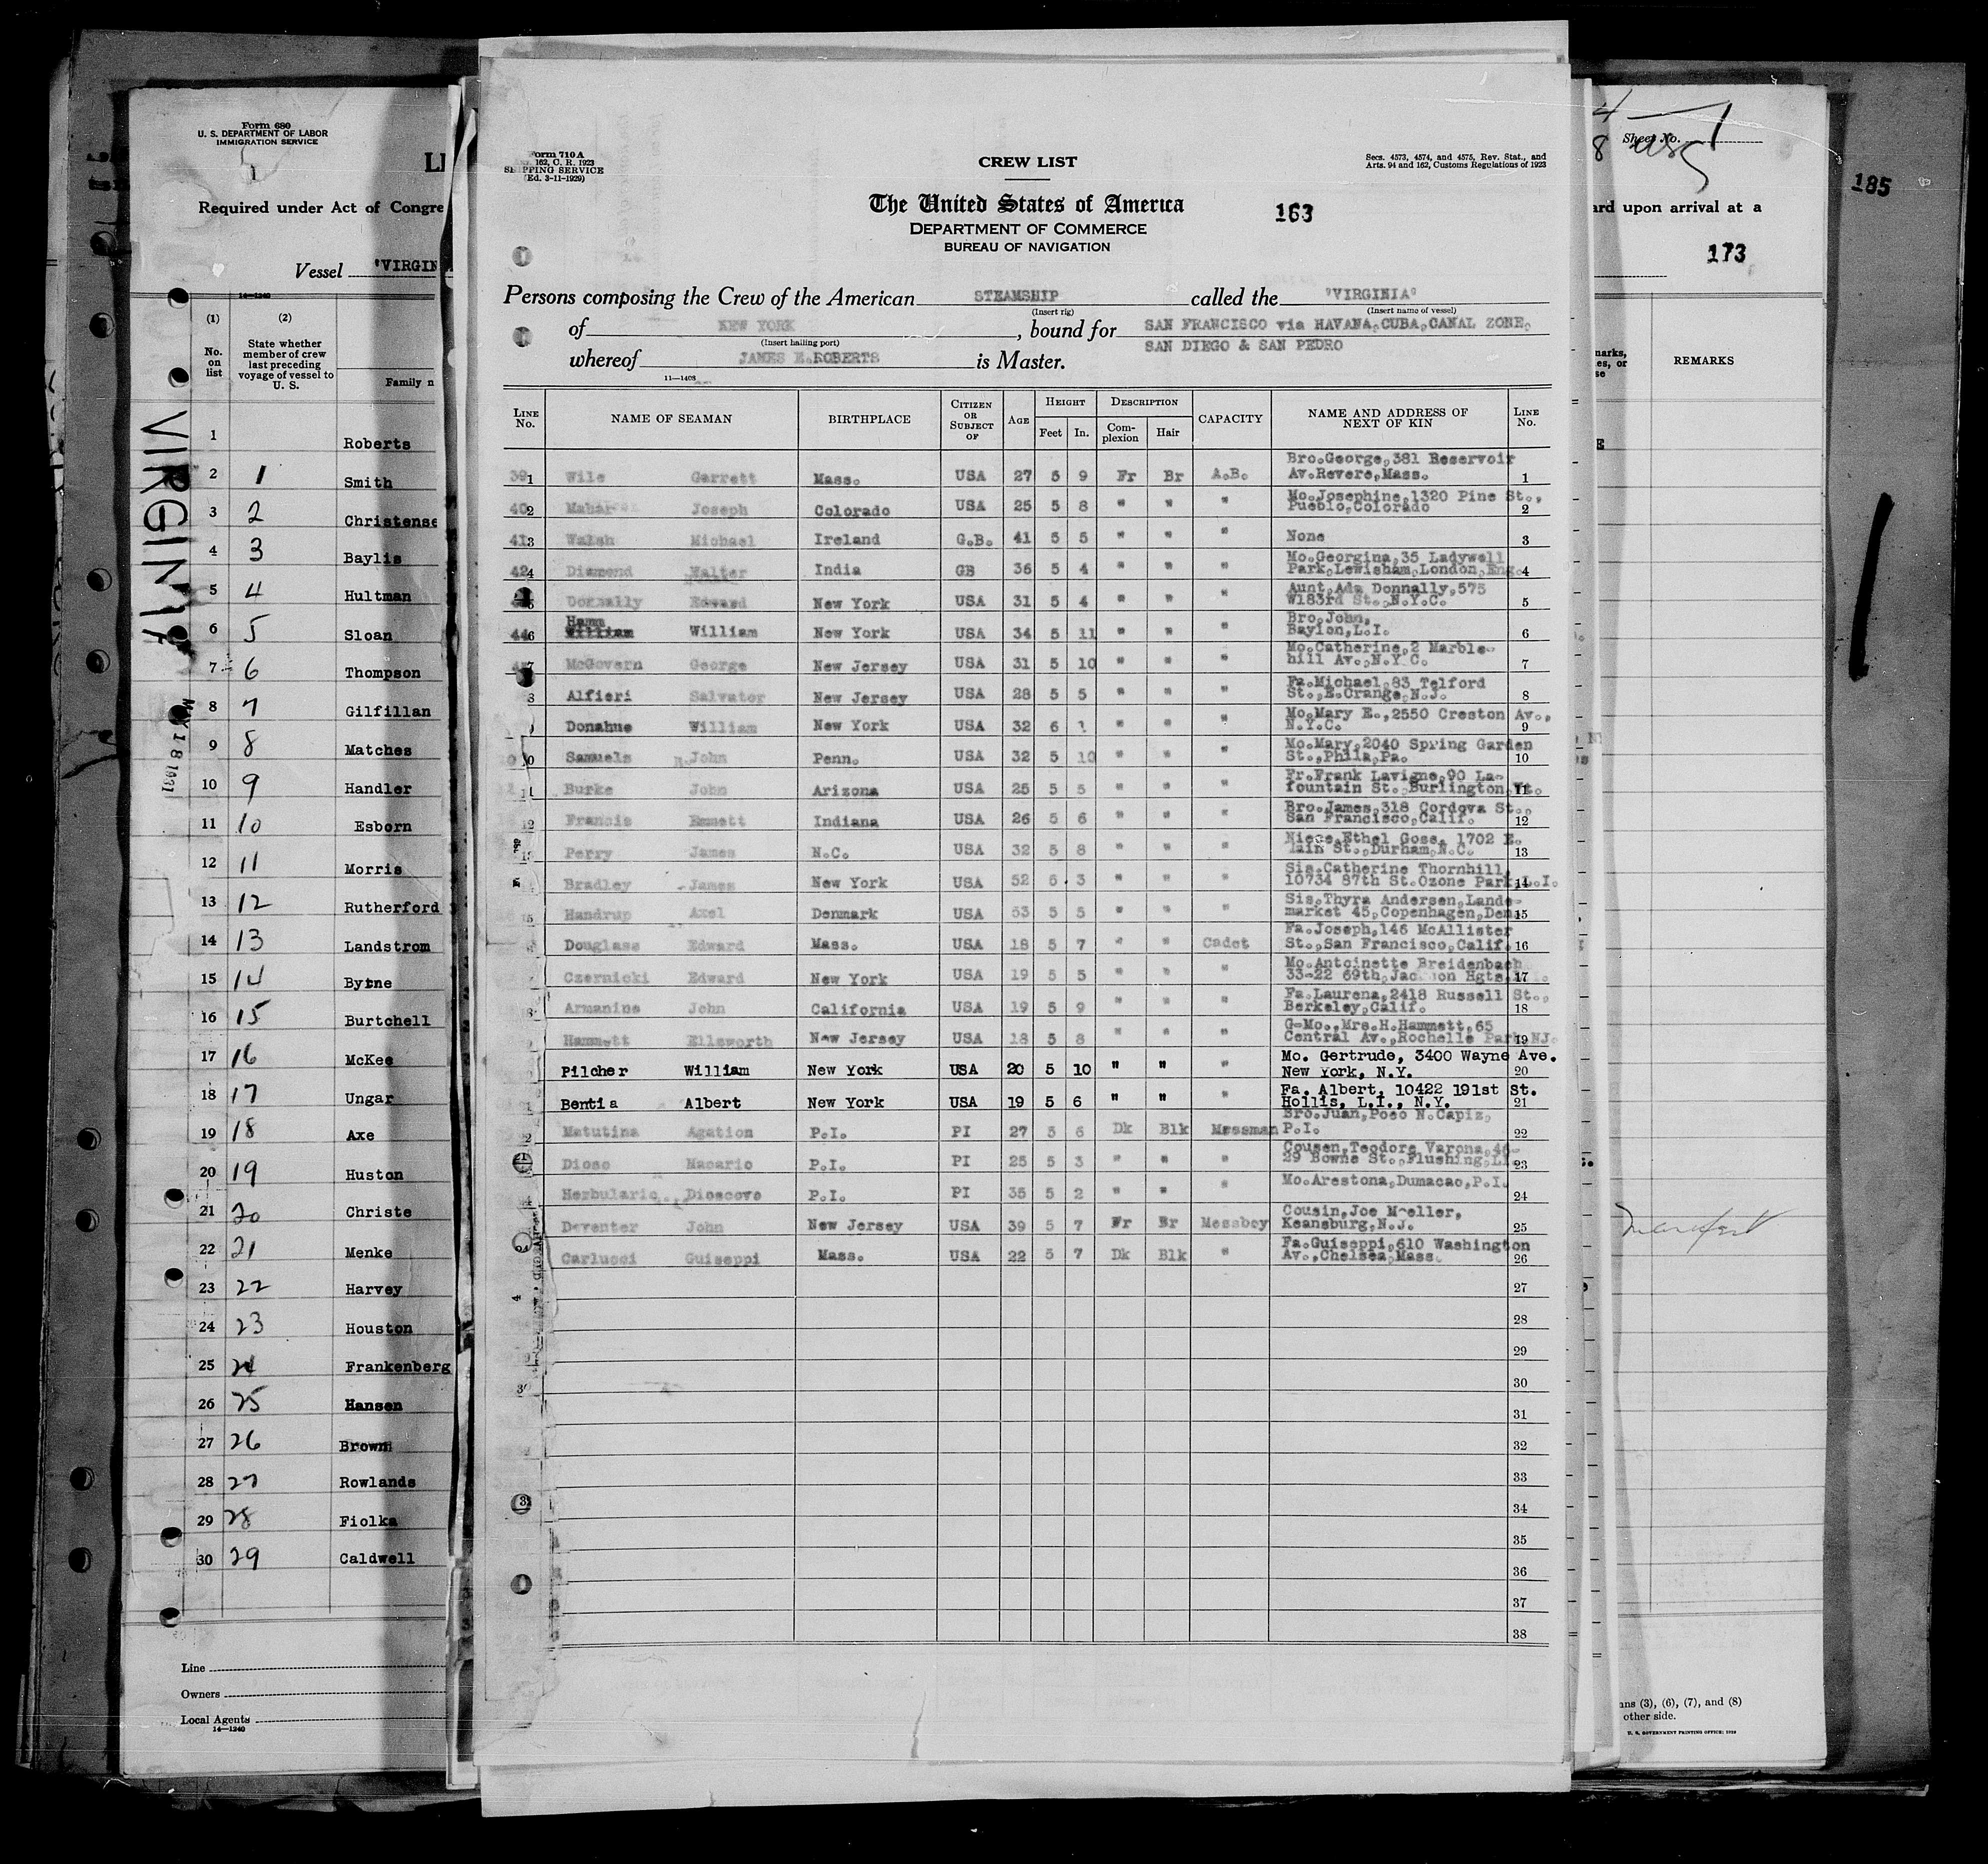 Form 680
U. S. DEPARTMENT OF LABOR
IMMIGRATION SERVICE
1
LI
Required under Act of Congre
Vessel "VIRGIN
14—1240
(1) (2)
No. on list
State whether member of crew last preceding voyage of vessel to U. S.
Family n
VIRGINIA
MAY 18 1931
1 Roberts
2 1 Smith
3 2 Christense
4 3 Baylis
5 4 Hultman
6 5 Sloan
7 6 Thompson
8 7 Gilfillan
9 8 Matches
10 9 Handler
11 10 Esborn
12 11 Morris
13 12 Rutherford
14 13 Landstrom
15 14 Byrne
16 15 Burtchell
17 16 McKee
18 17 Ungar
19 18 Axe
20 19 Huston
21 20 Christe
22 21 Menke
23 22 Harvey
24 23 Houston
25 24 Frankenberg
26 25 Hansen
27 26 Brown
28 27 Rowlands
29 28 Fiolka
30 29 Caldwell
Line
Owners
Local Agents
14—1240
Form 710 A
162, C. R. 1923
SHIPPING SERVICE
(Ed. 3-11-1929)
CREW LIST
Secs. 4573, 4574, and 4575, Rev. Stat., and
Arts. 94 and 162, Customs Regulations of 1923
The United States of America
163
DEPARTMENT OF COMMERCE
BUREAU OF NAVIGATION
Persons composing the Crew of the American STEAMSHIP called the "VIRGINIA"
(Insert rig) (Insert name of vessel)
of NEW YORK, bound for SAN FRANCISCO via HAVANA,CUBA,CANAL ZONE,
(Insert hailing port)
SAN DIEGO & SAN PEDRO
whereof JAMES E.ROBERTS is Master.
11—1408
LINE No. NAME OF SEAMAN BIRTHPLACE CITIZEN OR SUBJECT OF AGE HEIGHT Feet In. DESCRIPTION Complexion Hair CAPACITY NAME AND ADDRESS OF NEXT OF KIN LINE No.
Bro.George,381 Reservoir
39 1 Wile Garrett Mass. USA 27 5 9 Fr Br A.B. Av.Revere,Mass. 1
Mo.Josephine,1320 Pine St.,
40 2 Mahar Joseph Colorado USA 25 5 8 " " " Pueblo,Colorado 2
41 3 Walsh Michael Ireland G.B. 41 5 5 " " " None 3
Mo.Georgina,35 Ladywell
42 4 Diamond Walter India GB 36 5 4 " " " Park,Lewisham,London,Eng. 4
Aunt,Ada Donnally,575
5 Donnally Edward New York USA 31 5 4 " " " W183rd St.,N.Y.C. 5
Hamm Bro.John,
44 6 William William New York USA 34 5 11 " " " Baylon,L.I. 6
Mo.Catherine,2 Marble-
7 McGovern George New Jersey USA 31 5 10 " " " hill Av.,N.Y.C. 7
Fa.Michael,83 Telford
8 Alfieri Salvator New Jersey USA 28 5 5 " " " St.,E.Orange,N.J. 8
Mo.Mary E.,2550 Creston Av.,
Donahue William New York USA 32 6 1 " " " N.Y.C. 9
Mo.Mary,2040 Spring Garden
Samuels John Penn. USA 32 5 10 " " " St.,Phila,Pa. 10
Fr.Frank Lavigne,90 La-
11 Burke John Arizona USA 25 5 5 " " " fountain St.,Burlington,Vt. 11
Bro.James,318 Cordova St.,
12 Francis Emmett Indiana USA 26 5 6 " " " San Francisco,Calif. 12
Niece,Ethel Gose, 1702 E.
13 Perry James N.C. USA 32 5 8 " " " Main St.,Durham,N.C. 13
Sis.Catherine Thornhill,
Bradley James New York USA 52 5 3 " " " 10734 87th St.Ozone Park,L.I. 14
Sis.Thyra Andersen,Lande-
15 Handrup Axel Denmark USA 53 5 5 " " " market 45,Copenhagen,Den. 15
Fa.Joseph,146 McAllister
Douglass Edward Mass. USA 18 5 7 " " Cadet St.,San Francisco,Calif. 16
Mo.Antoinette Breidenbach
Czernicki Edward New York USA 19 5 5 " " " 33-22 69th,Jackson Hgts. 17
Fa.Laurena,2418 Russell St.,
Armanine John California USA 19 5 9 " " " Berkeley,Calif. 18
G-Mo.,Mrs.H.Hammett,65
Hammett Ellsworth New Jersey USA 18 5 8 " " " Central Av.,Rochelle Park,NJ. 19
Mo. Gertrude, 3400 Wayne Ave.
Pilcher William New York USA 20 5 10 " " " New York, N.Y. 20
Fa. Albert, 10422 191st St.
Bentia Albert New York USA 19 5 6 " " " Hollis, L.I., N.Y. 21
Bro.Juan,Poso N.Capiz,
Matutina Agation P.I. PI 27 5 6 Dk Blk Messman P.I. 22
Cousen,Teodore Varona,46-
Dioso Macario P.I. PI 25 5 3 " " " 29 Bowne St.,Flushing,LI. 23
Herbularic Dioscovo P.I. PI 35 5 2 " " " Mo.Arestona,Dumacao,P.I. 24
Cousin,Joe Moeller,
Deventer John New Jersey USA 39 5 7 Fr Br Messboy Keansburg,N.J. 25
Fa.Guiseppi,610 Washington
Carlucci Guiseppi Mass. USA 22 5 7 Dk Blk " Av.,Chelsea,Mass. 26
27
28
29
30
31
32
33
34
35
36
37
38
Sheet No. 1
185
ard upon arrival at a
173
marks,
es, or
se
REMARKS
ns (3), (6), (7), and (8)
other side.
U. S. GOVERNMENT PRINTING OFFICE: 1929